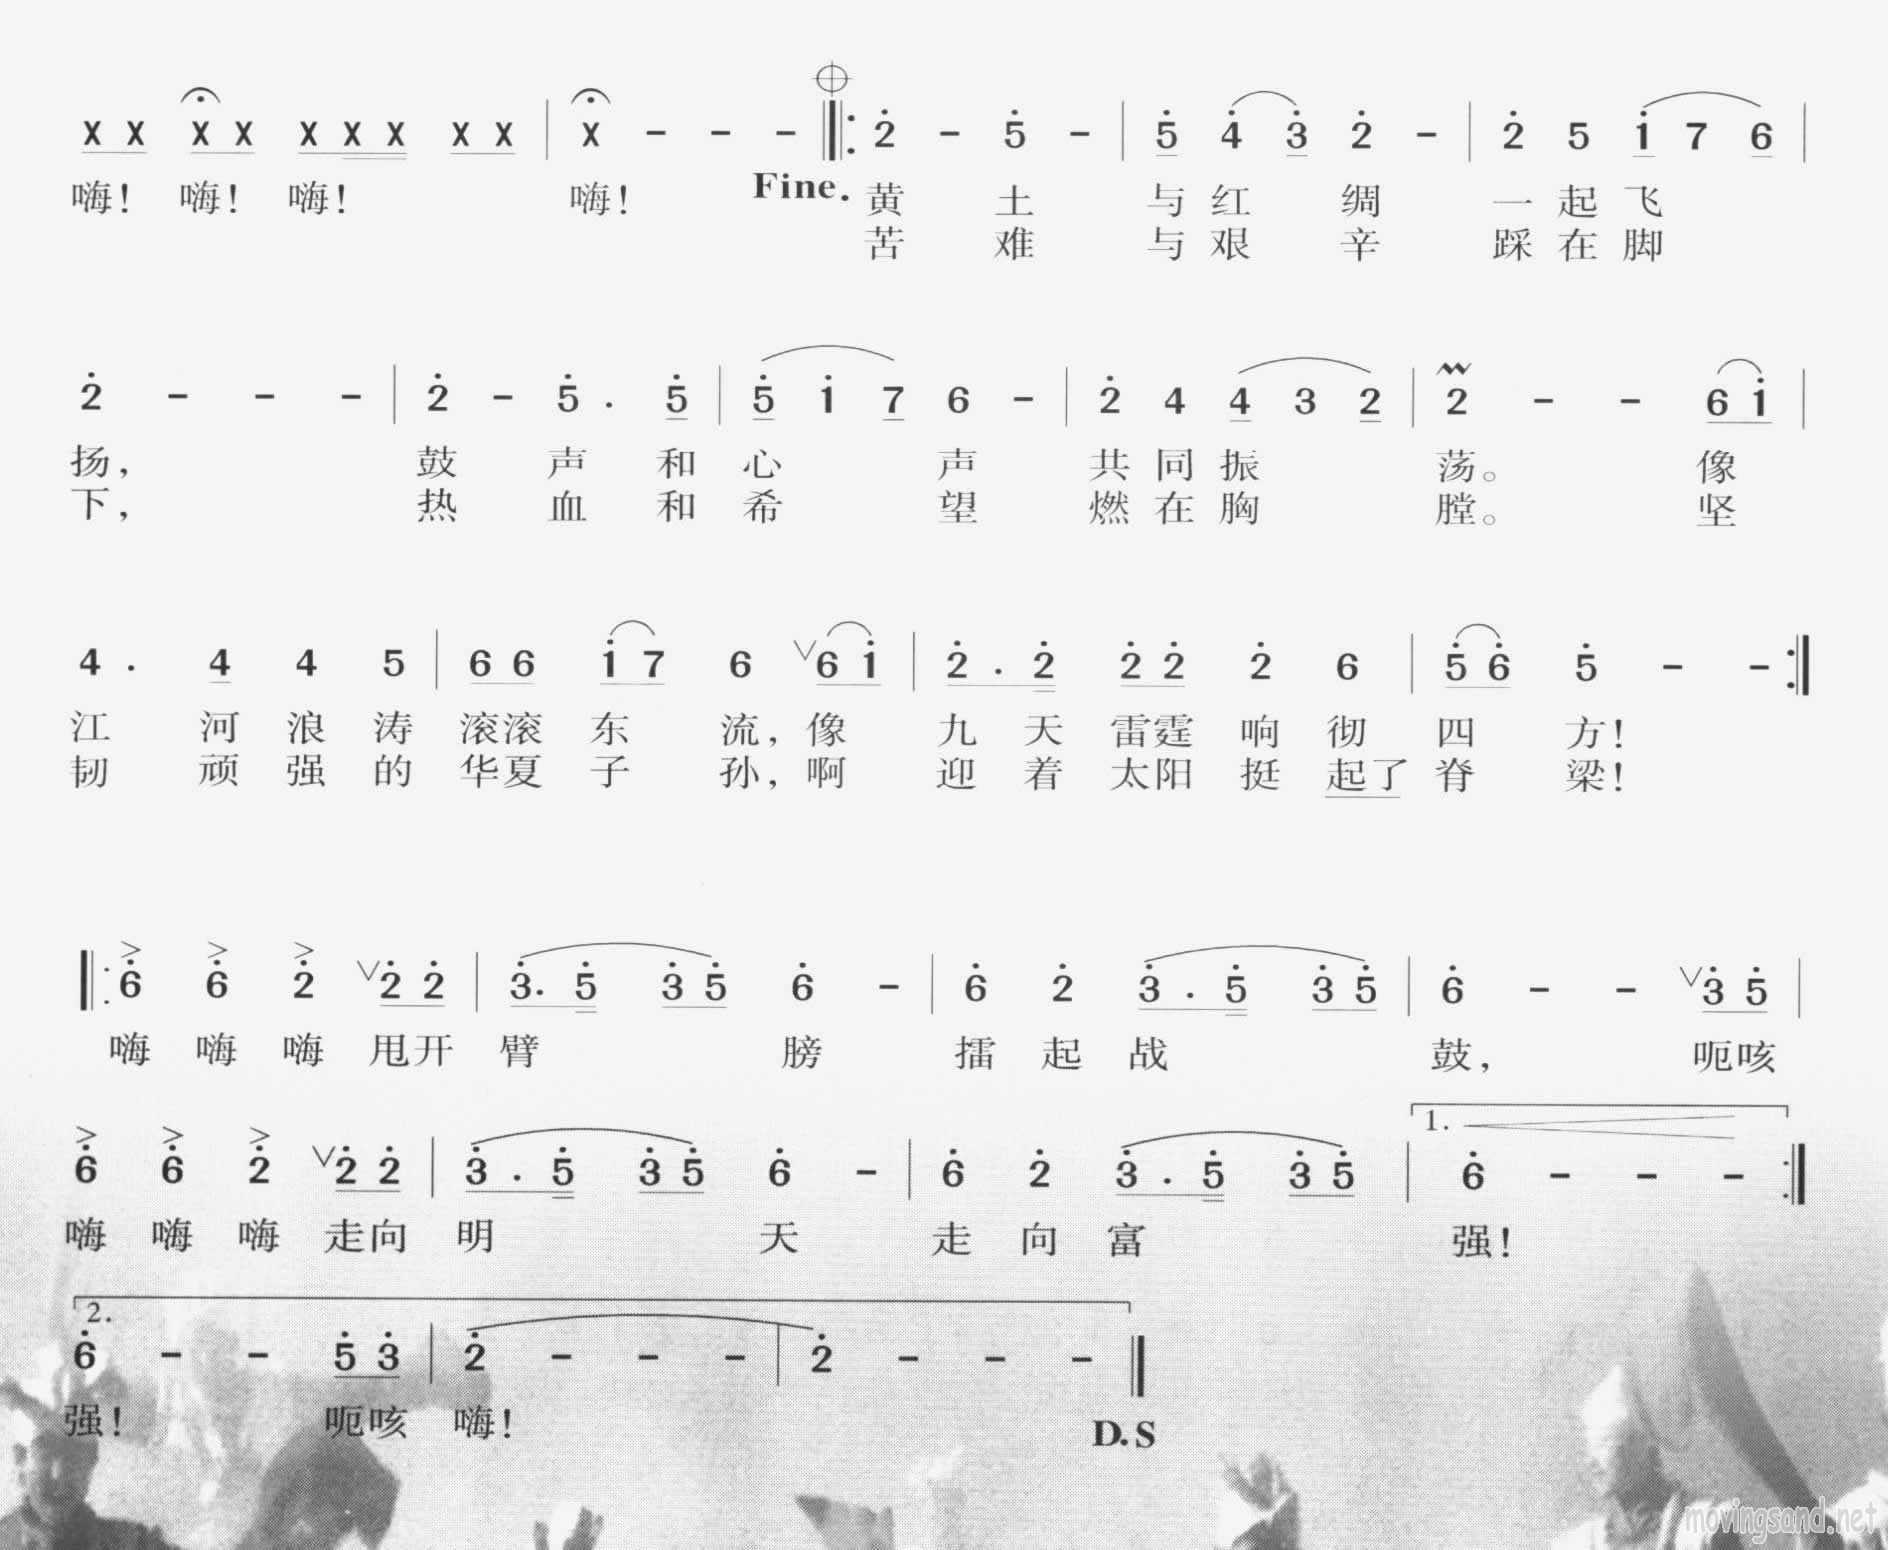 X X X X X X X X X | X - - - ‖: 2 - 5 - | 5 4 3 2 - | 2 5 1 7 6 |
嗨! 嗨! 嗨! 嗨! Fine. 黄 土 与 红 绸 一 起 飞
苦 难 与 艰 辛 踩 在 脚
2 - - - | 2 - 5 . 5 | 5 1 7 6 - | 2 4 4 3 2 | 2 - - 6 1 |
扬, 鼓 声 和 心 声 共 同 振 荡。 像
下, 热 血 和 希 望 燃 在 胸 膛。 坚
4 . 4 4 5 | 6 6 1 7 6 6 1 | 2 . 2 2 2 2 6 | 5 6 5 - - :‖
江 河 浪 涛 滚滚 东 流, 像 九 天 雷霆 响 彻 四 方!
韧 顽 强 的 华夏 子 孙, 啊 迎 着 太阳 挺 起了 脊 梁!
‖: 6 6 2 2 2 | 3. 5 3 5 6 - | 6 2 3 . 5 3 5 | 6 - - 3 5 |
嗨 嗨 嗨 甩开 臂 膀 擂 起 战 鼓, 呃咳
1.
6 6 2 2 2 | 3 . 5 3 5 6 - | 6 2 3 . 5 3 5 | 6 - - - :‖
嗨 嗨 嗨 走向 明 天 走 向 富 强!
2.
6 - - 5 3 | 2 - - - | 2 - - - ‖
强! 呃咳 嗨! D.S
movingsand.net